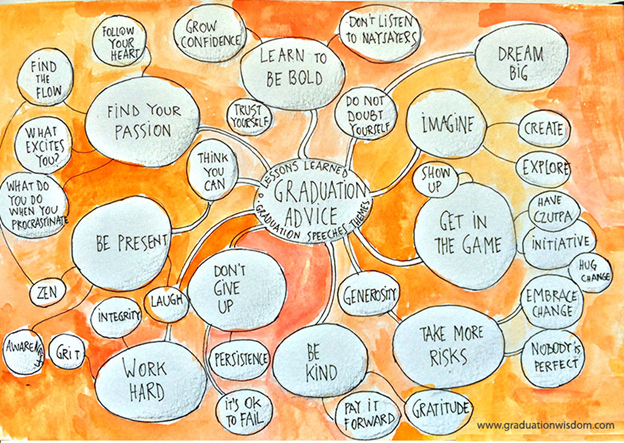 FOLLOW
YOUR
HEART
GROW
CONFIDENCE
DON'T LISTEN
TO NAYSAYERS
LEARN TO
BE BOLD
DREAM
BIG
FIND
THE
FLOW
FIND YOUR
PASSION
TRUST
YOURSELF
DO NOT
DOUBT
YOURSELF
IMAGINE
CREATE
EXPLORE
WHAT
EXCITES
YOU?
THINK
YOU
CAN
WHAT DO
YOU DO
WHEN YOU
PROCRASTINATE
LESSONS LEARNED
GRADUATION
ADVICE
GRADUATION SPEECHES THEMES
SHOW
UP
GET IN
THE GAME
HAVE
CZUTPA
INITIATIVE
HUG
CHANGE
BE PRESENT
ZEN
LAUGH
INTEGRITY
DON'T
GIVE
UP
GENEROSITY
EMBRACE
CHANGE
TAKE MORE
RISKS
NOBODY IS
PERFECT
AWARENESS
GRIT
WORK
HARD
PERSISTENCE
IT'S OK
TO FAIL
BE
KIND
PAY IT
FORWARD
GRATITUDE
www.graduationwisdom.com